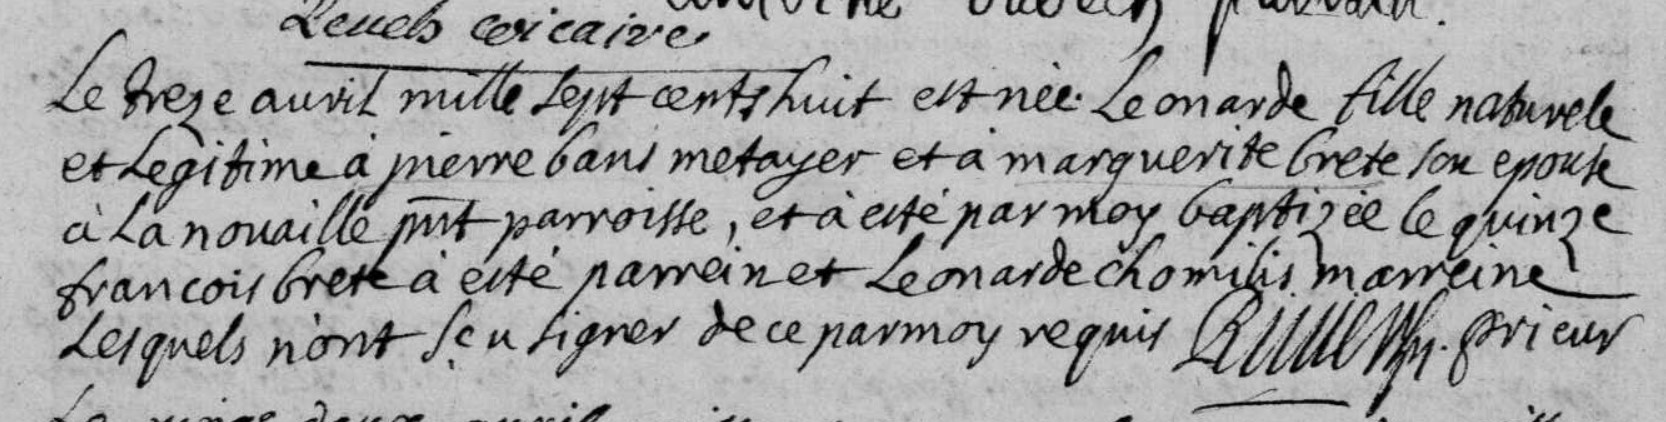 Le treze auvril mille sept cents huit est née Leonarde fille naturele
et Legitime à pierre bans metayer et à marguerite brete son epouse
à La nouaille pnt parroisse, et à esté par moy baptizée le quinze
francois brete à esté parrein et Leonarde chomilis marreine
Lesquels n'ont sçu signer de ce par moy requis prieur